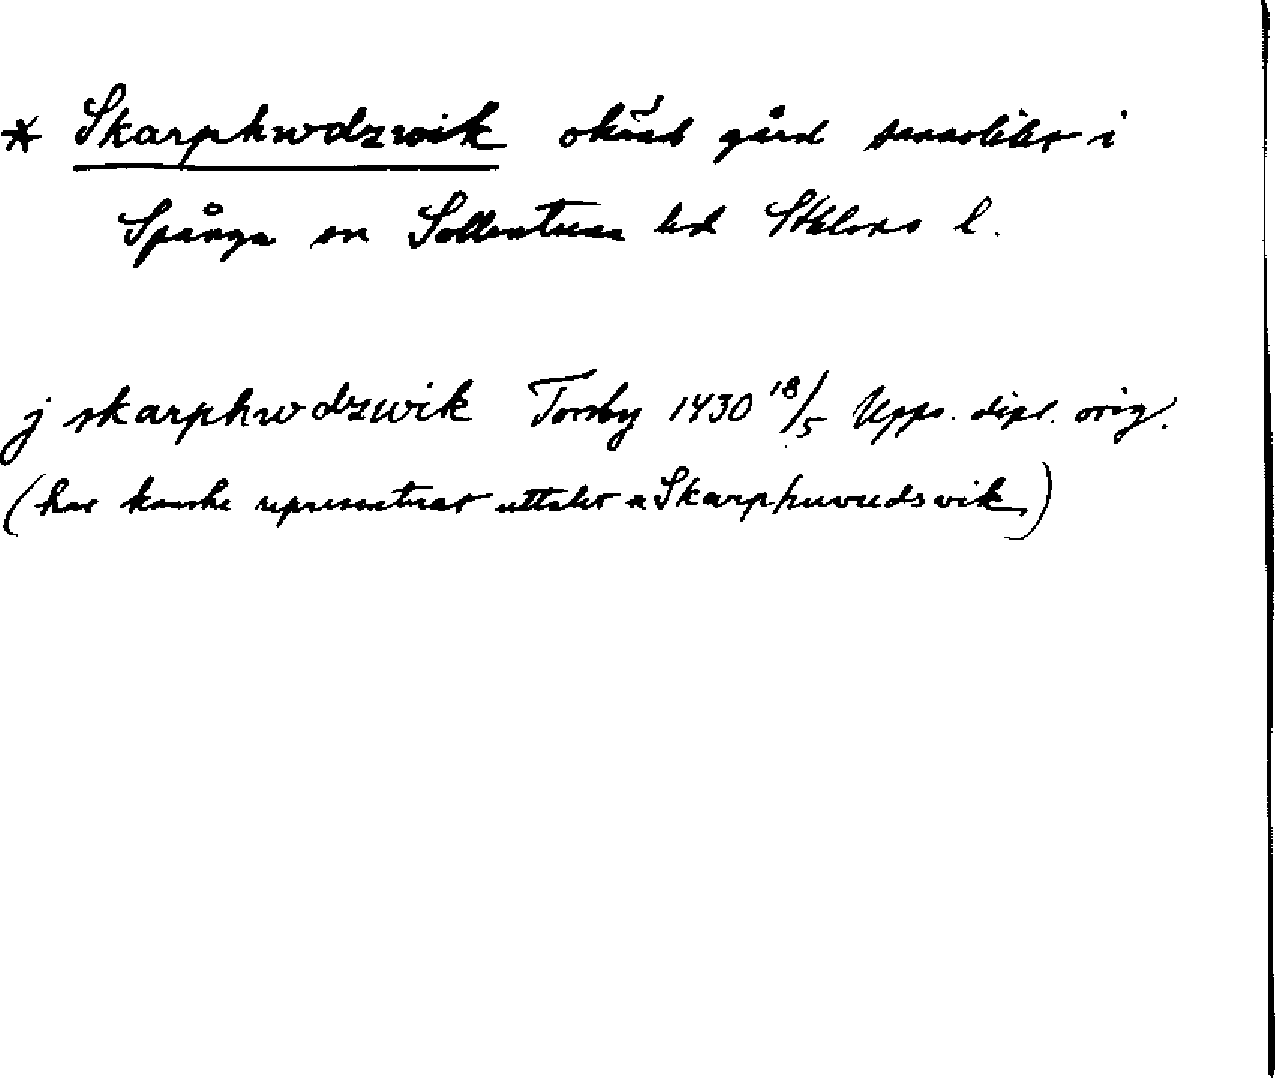 * Skarphwdzwik okänd gård sannolikt i
Spånga sn Sollentuna hd Sthlms l.
j skarphwdzwik Torsby 1430 18/5 Upps. dipl. orig.
(har kanske representerat uttalet a Skarphuvudsvik)